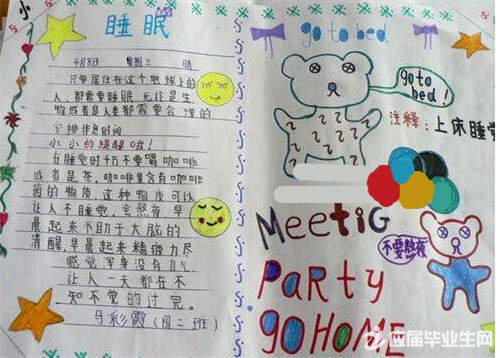 小
睡眠
4月8日 星期三 晴
只要居住在这个地球上的
人都需要睡眠,无论是生
物或者是人类都需要合理的
安排作息时间
小小的提醒哦!
在睡觉时千万不要喝咖啡
或者是茶,咖啡里含有咖啡
茵的物质,这种物质可以
让人不睡觉,宅熬夜,早
晨起来不助于大脑的
清醒,早晨起来精疲力尽
感觉浑身没有力气
让人一天都在不
知不觉的过完。
马彩霞(四二班)
go to bed
go to
bed!
注释:上床睡觉
Meetig
不要熬夜
PaRty
go HOME
应届毕业生网